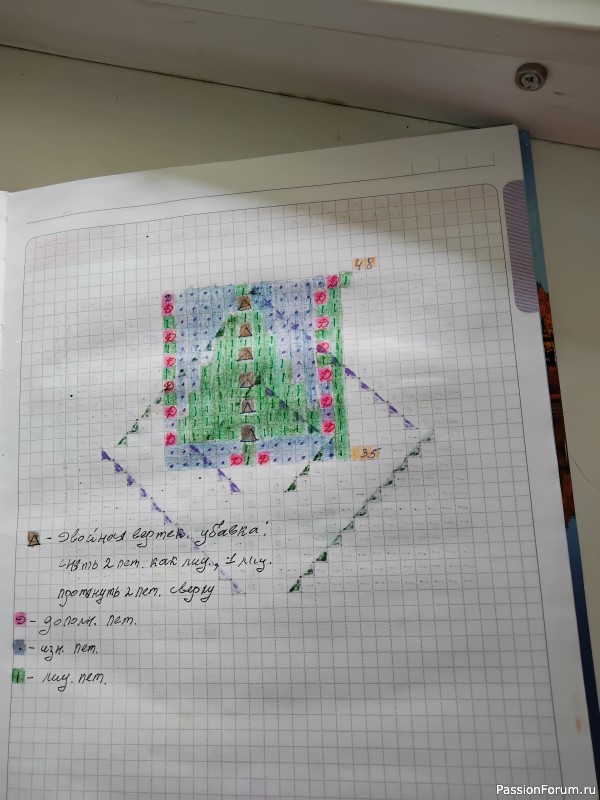 48
35
- Двойная вертик. убавка:
снять 2 пет. как лиц., 1 лиц.
протянуть 2 пет. сверху
- дополн. пет.
- изн. пет.
- лиц. пет.
PassionForum.ru